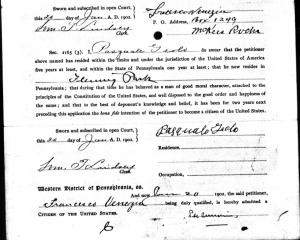 Sworn and subscribed in open Court, this
20 day of Jan. A.D. 1902.
Clerk.
Francesco Venezia
P. O. Address, Box 1299
McKees Rocks
Sec. 2165 (3). I, Pasquale Tiolo do swear that the petitioner
above named has resided within the limits and under the jurisdiction of the United States of America
five years at least, and within the State of Pennsylvania one year at least; that he now resides in
Pennsylvania; that during that time he has behaved as a man of good moral character, attached to the
principles of the Constitution of the United States, and well disposed to the good order and happiness of the
same; and that to the best of deponent's knowledge and belief, it has been for two years next
preceding this application the bona fide intention of the petitioner to become a citizen of the United States.
Sworn and subscribed in open Court,
this 20 day of Jan A.D. 1902.
Clerk.
Pasquale Tiolo
Residence,
Occupation,
Western District of Pennsylvania, ss. And now 20 1902, the said petitioner,
Francesco Venezia being duly qualified, is hereby admitted a
Citizen of the United States.